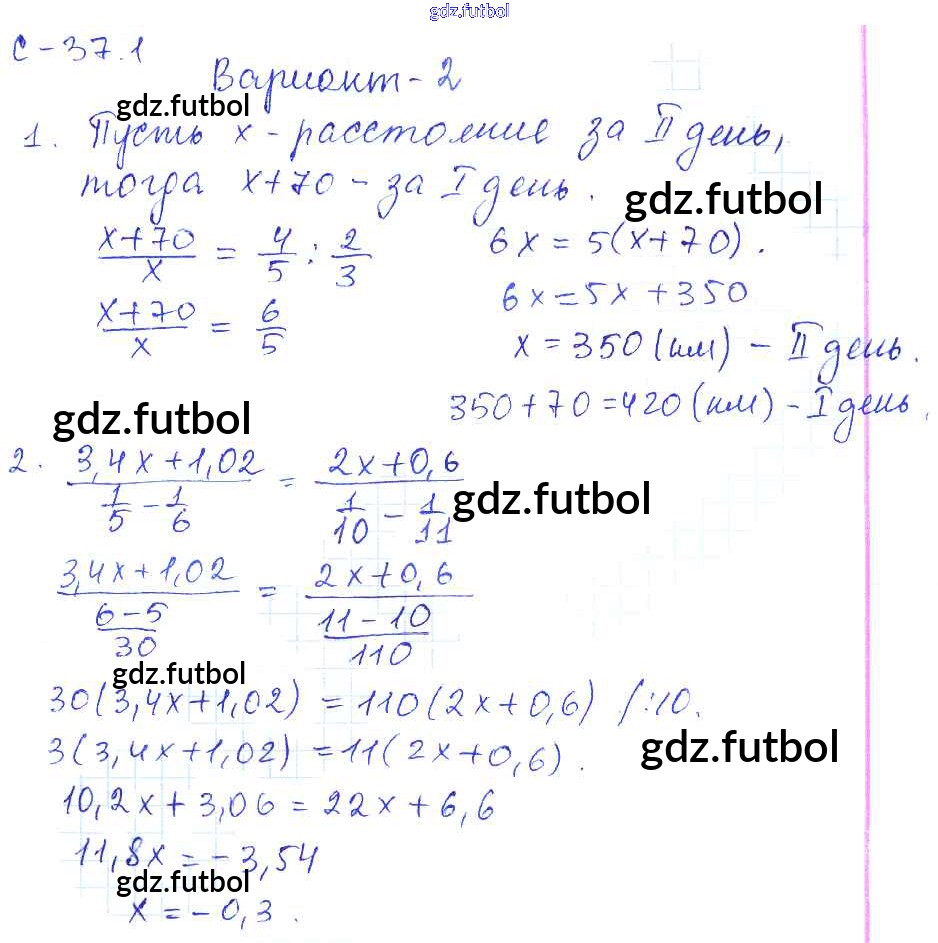 gdz.futbol
С-37.1
Вариант-2
gdz.futbol
1. Пусть x - расстояние за II день,
тогда x+70 - за I день.
gdz.futbol
(x+70)/x = 4/5 : 2/3
6x = 5(x+70).
6x=5x+350
(x+70)/x = 6/5
x=350(км) - II день.
350+70=420(км) - I день.
gdz.futbol
2. (3,4x+1,02)/(1/5 - 1/6) = (2x+0,6)/(1/10 - 1/11)
gdz.futbol
(3,4x+1,02)/((6-5)/30) = (2x+0,6)/((11-10)/110)
gdz.futbol
30(3,4x+1,02) = 110(2x+0,6) /:10.
3(3,4x+1,02) = 11(2x+0,6).
gdz.futbol
10,2x+3,06=22x+6,6
11,8x=-3,54
gdz.futbol
x=-0,3.